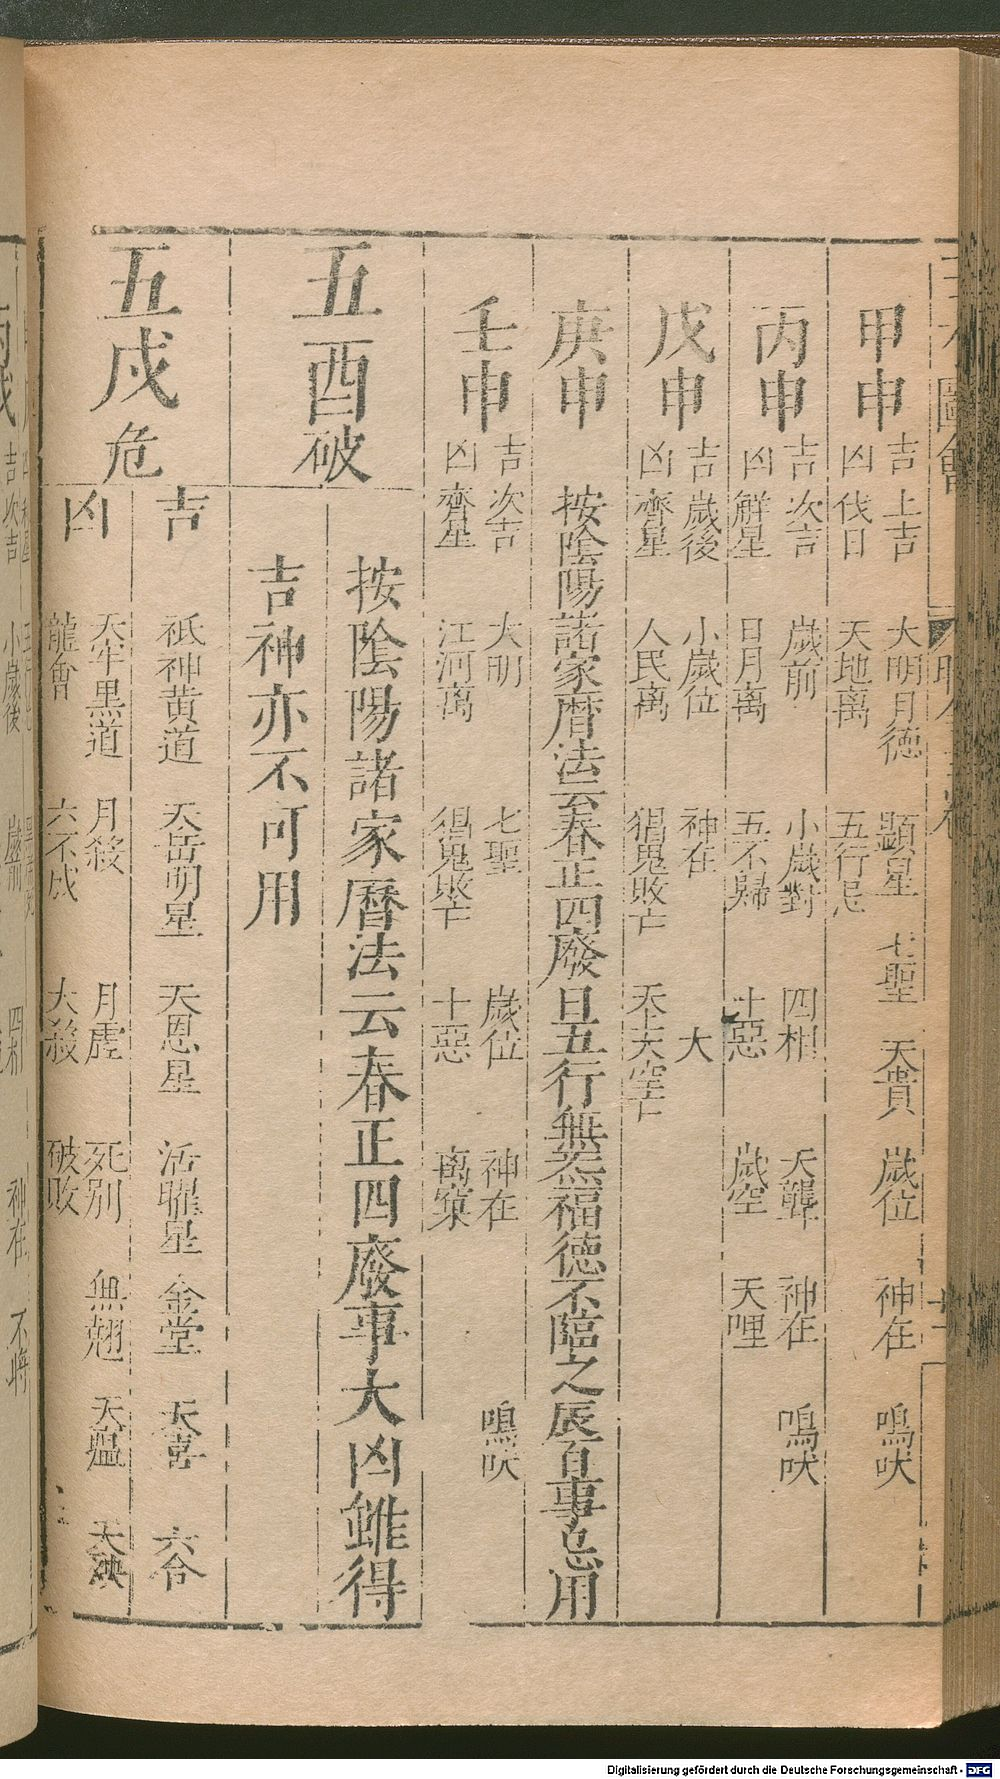 甲申
吉 上吉 大明 月德 顯星 七聖 天貴 歲位 神在 鳴吠
凶 伐日 天地离 五行忌
丙申
吉 次吉 歲前 小歲對 四相 天聾 神在 鳴吠
凶 觧星 日月离 五不歸 十惡 歲空 天哩
戊申
吉 歲後 小歲位 神在 大
凶 齊星 人民离 猖鬼敗亡 天上大空亡
庚申
按陰陽諸家曆法云春正四廢旦五行無炁福德不臨之辰百事忌用
壬申
吉 次吉 大明 七聖 歲位 神在 鳴吠
凶 齊星 江河离 猖鬼敗亡 十惡 离窠
五酉破
按陰陽諸家曆法云春正四廢事大凶雖得
吉神亦不可用
五戌危
吉 祇神黄道 天岳明星 天恩星 活曜星 金堂 天喜 六合
凶 天牢黒道 月殺 月虛 死别 無翹 天瘟 天殃
龍會 六不成 大殺 破敗
Digitalisierung gefördert durch die Deutsche Forschungsgemeinschaft - DFG